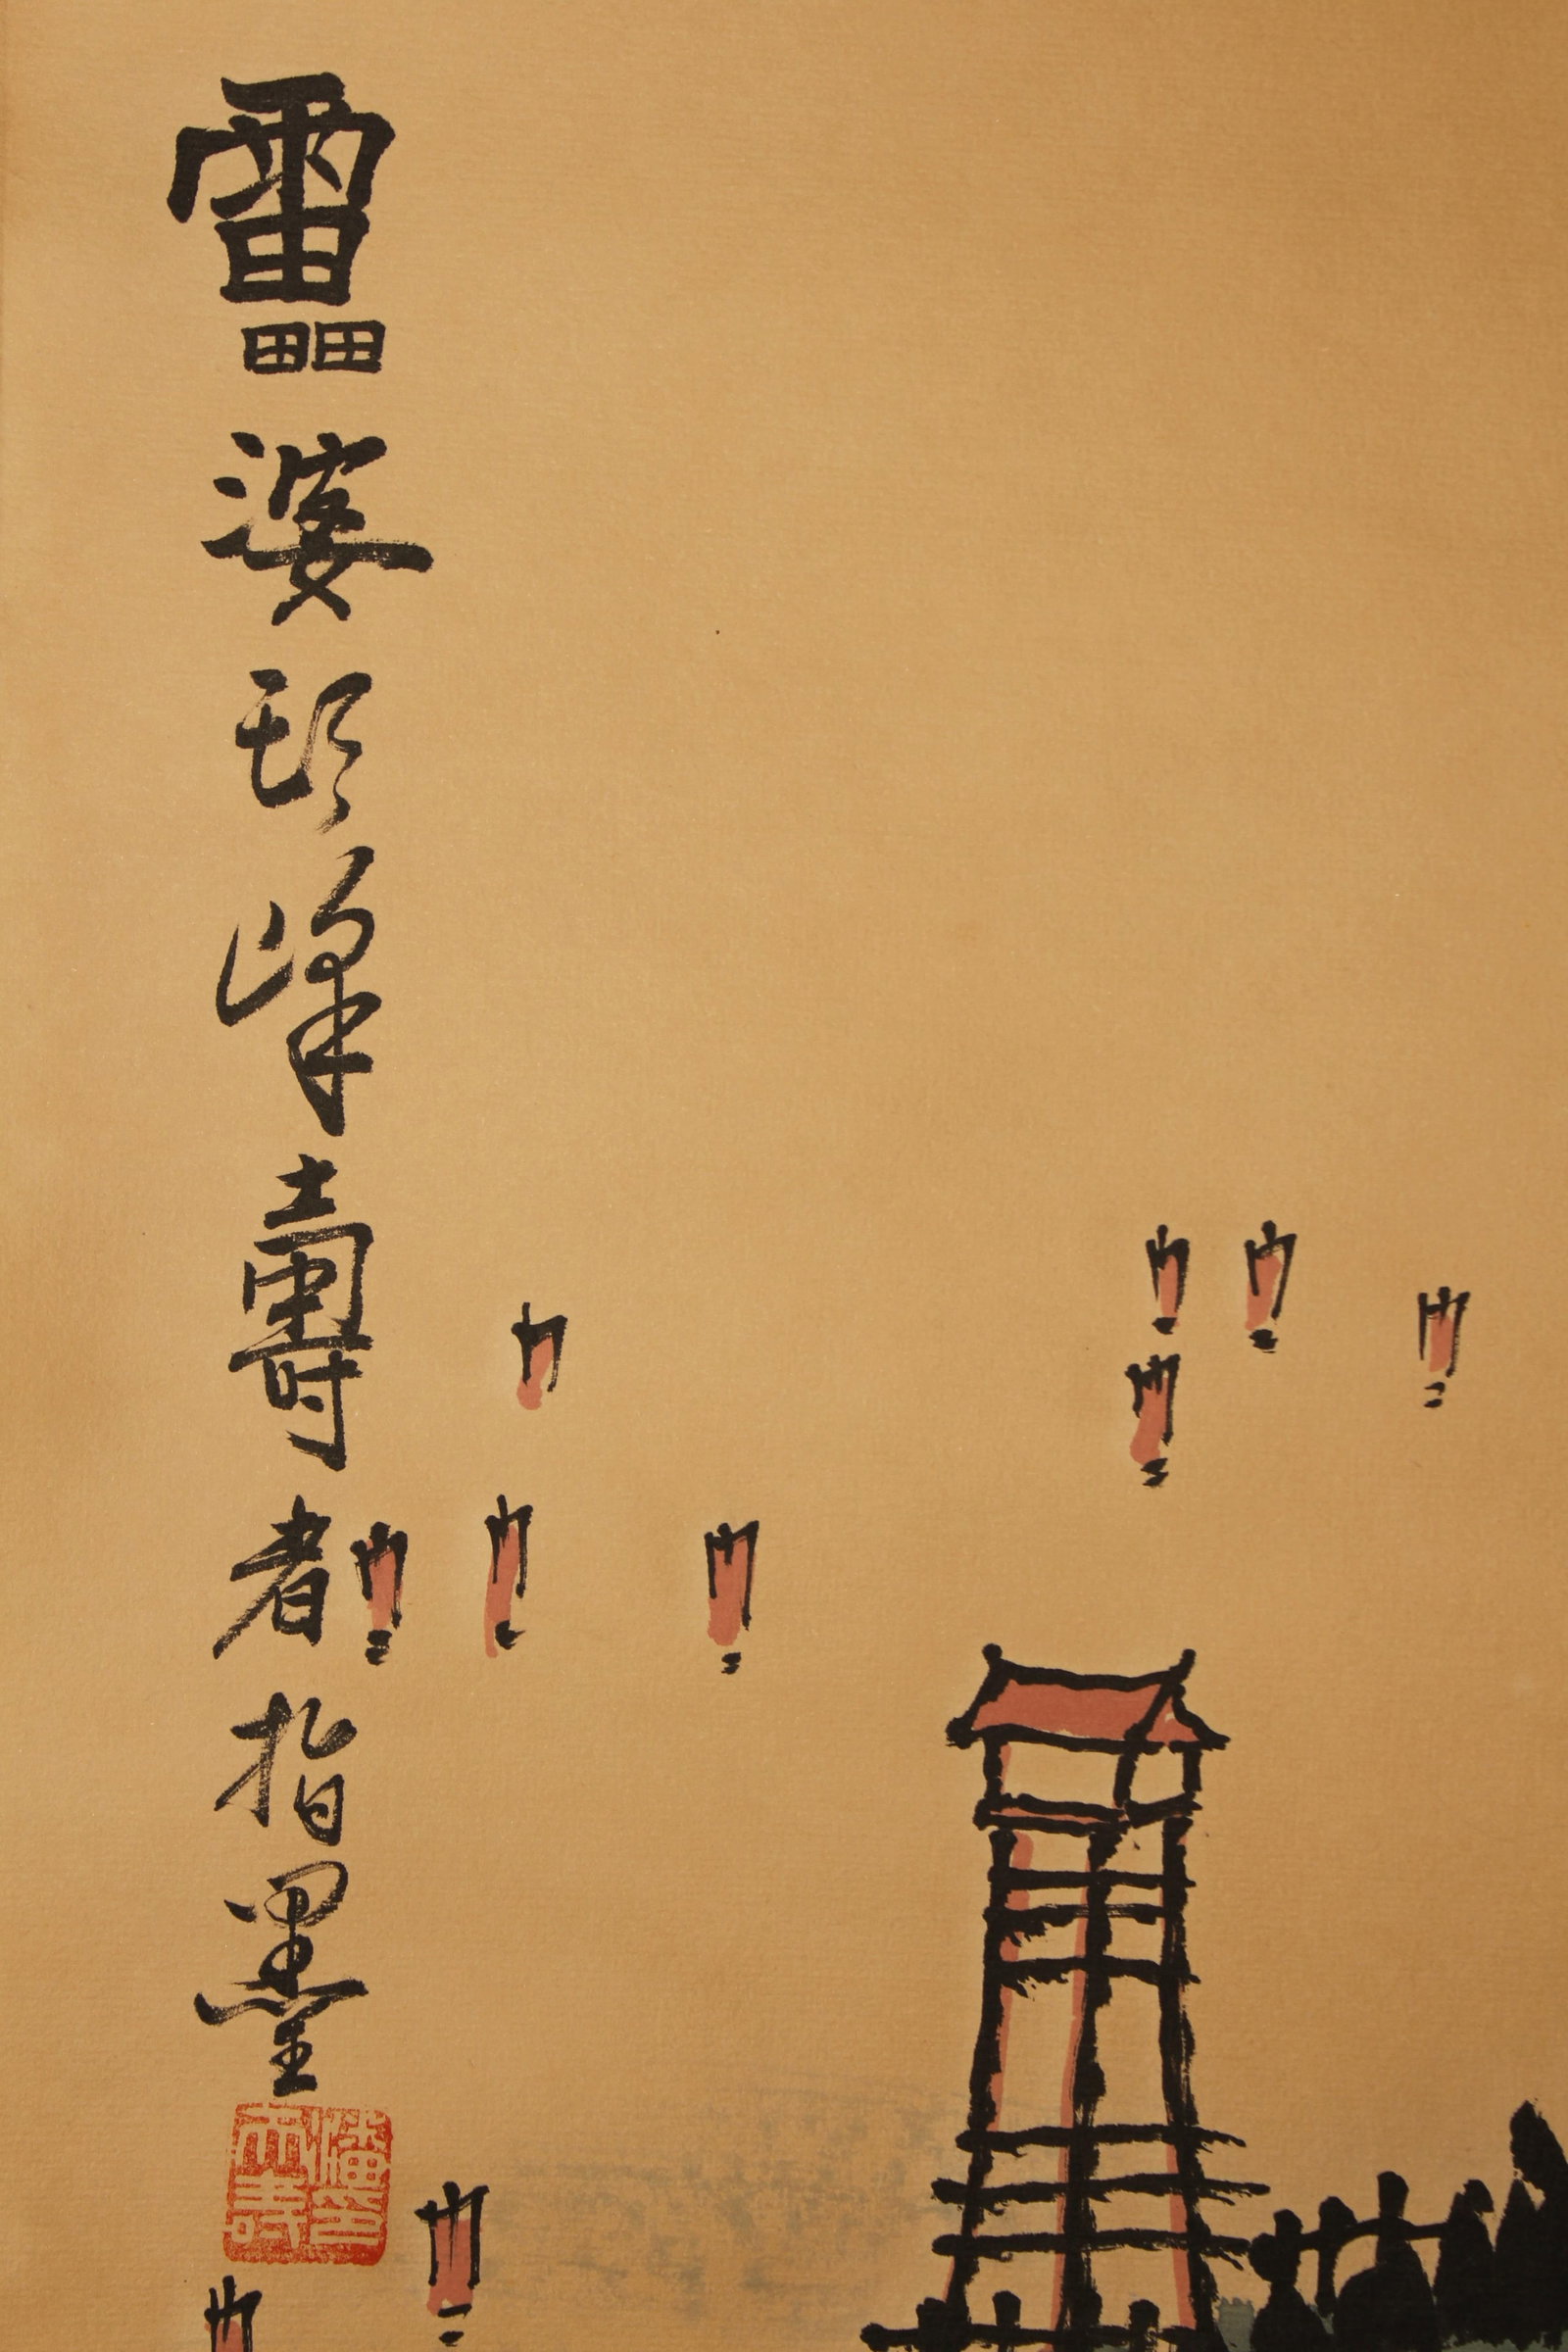 靁婆頭峰壽者指墨
潘天壽印